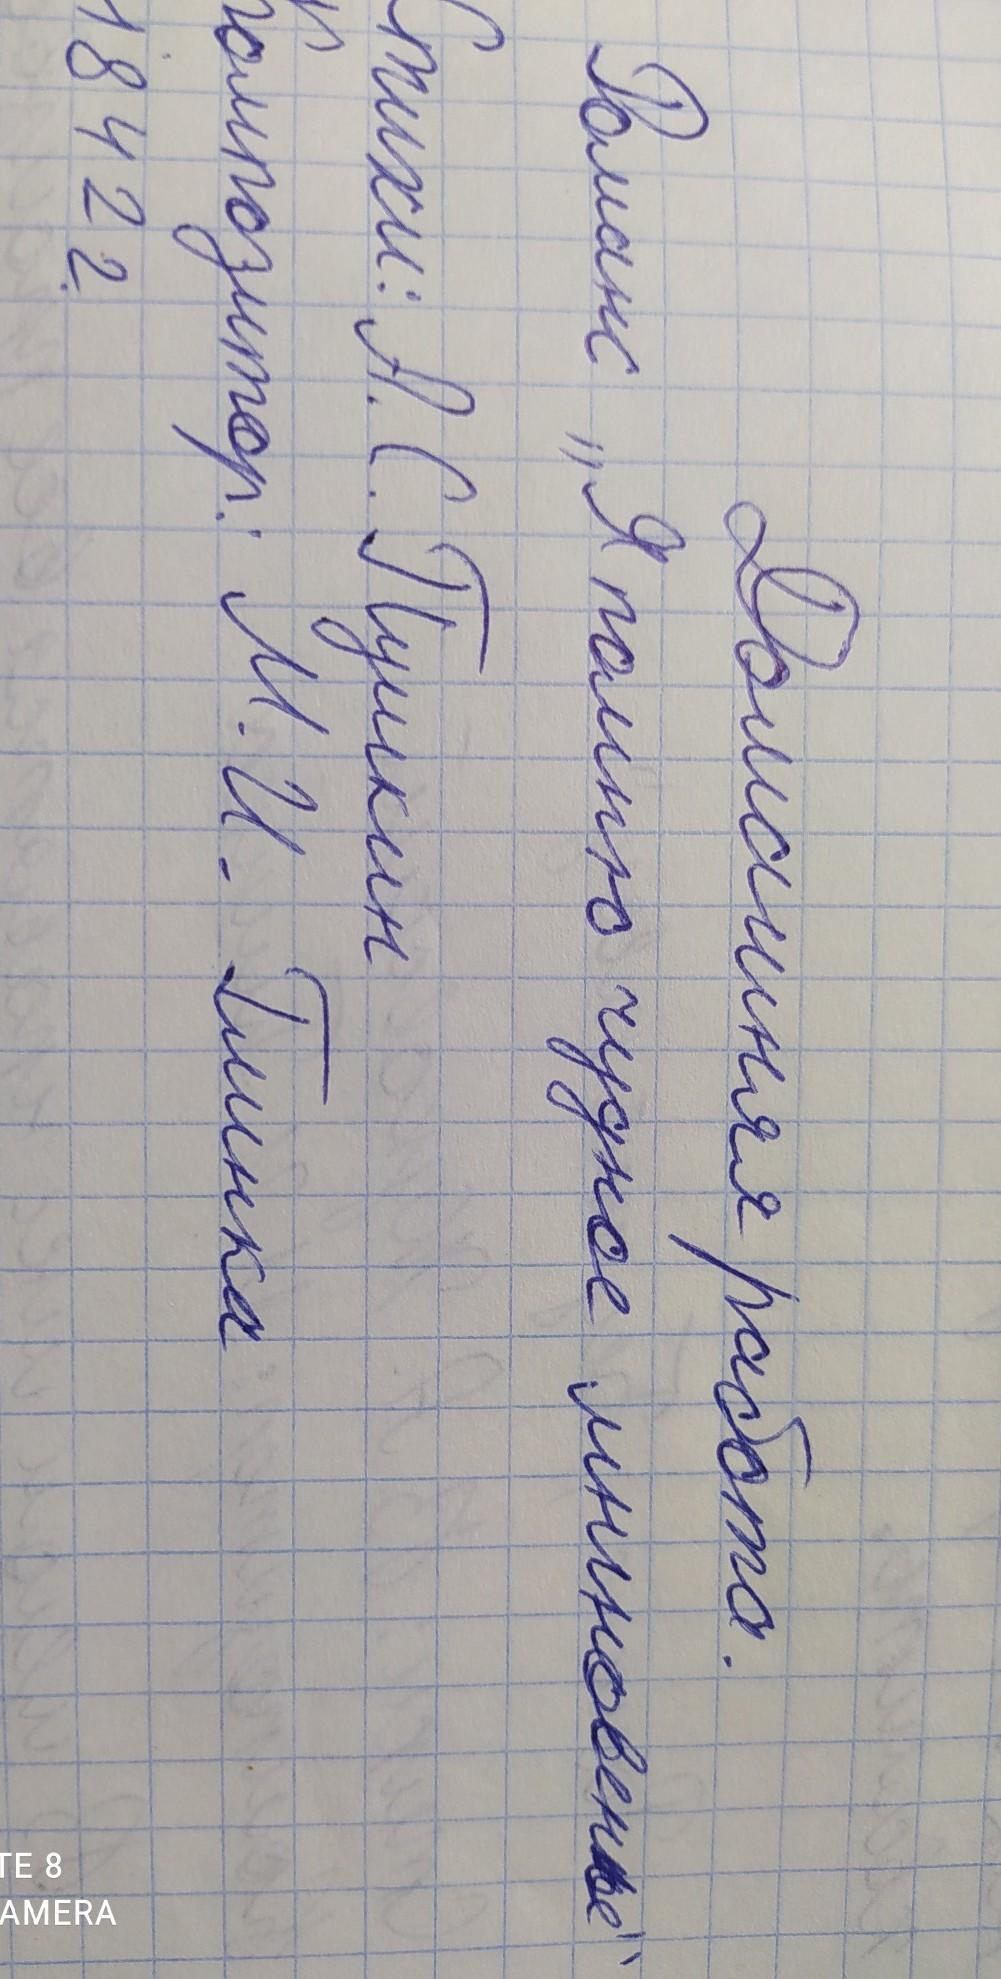 Домашняя работа.
Романс „Я помню чудное мгновенье"
Стихи: А.С. Пушкин
Композитор: М.И. Глинка
1842 г.
TE 8
AMERA